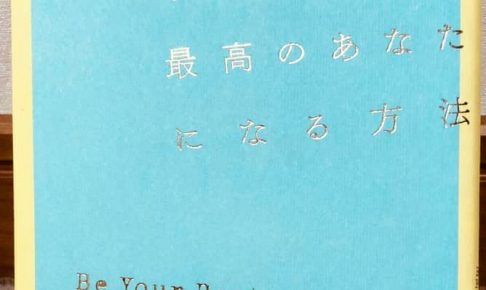 最高のあなた
になる方法
Be Your